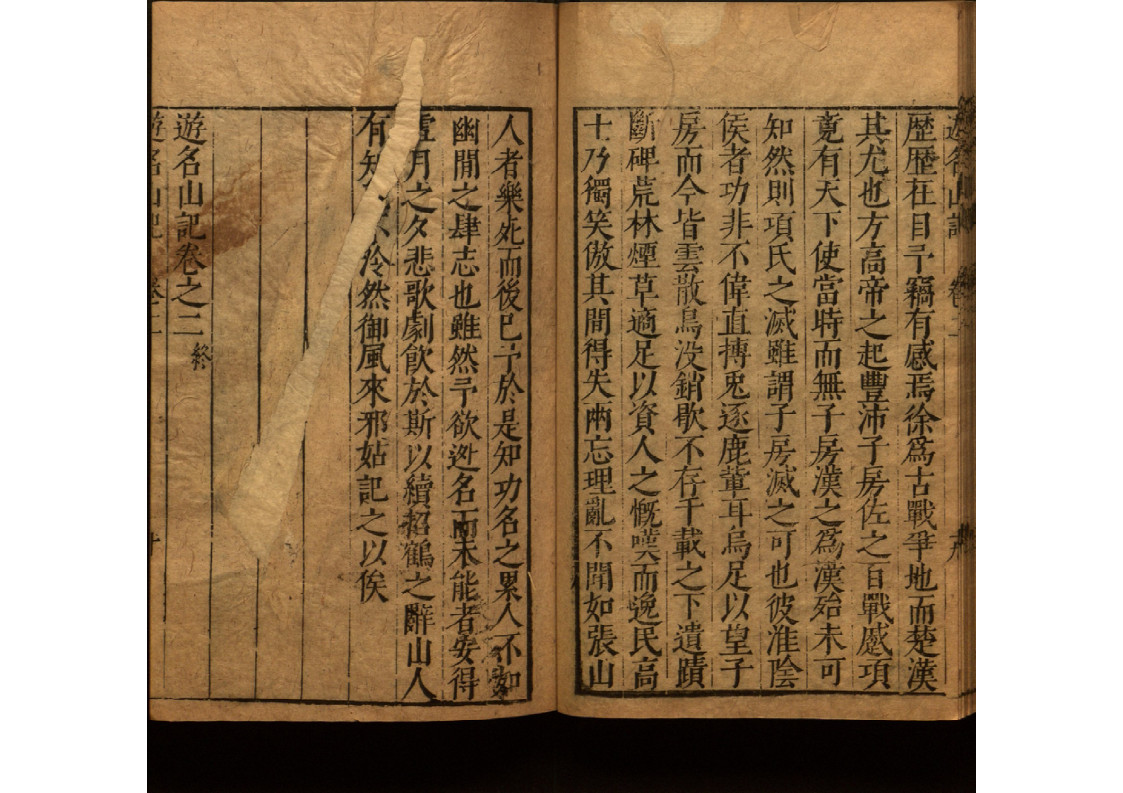 遊名山記 卷二
歷歷在目予竊有感焉徐為古戰爭地而楚漢
其尤也方高帝之起豐沛子房佐之百戰蹙項
竟有天下使當時而無子房漢之為漢殆未可
知然則項氏之滅雖謂子房滅之可也彼淮陰
侯者功非不偉直搏兎逐鹿輩耳烏足以望子
房而今皆雲散鳥没銷歇不存千載之下遺蹟
斷碑荒林煙草適足以資人之慨嘆而逸民高
士乃獨笑傲其間得失兩忘理亂不聞如張山
人者樂死而後已予於是知功名之累人不如
幽閒之肆志也雖然予欲逃名而未能者安得
月之夕悲歌劇飲於斯以續招鶴之辭山人
有知 泠然御風來邪姑記之以俟
遊名山記卷之二 終
遊名山記 卷二